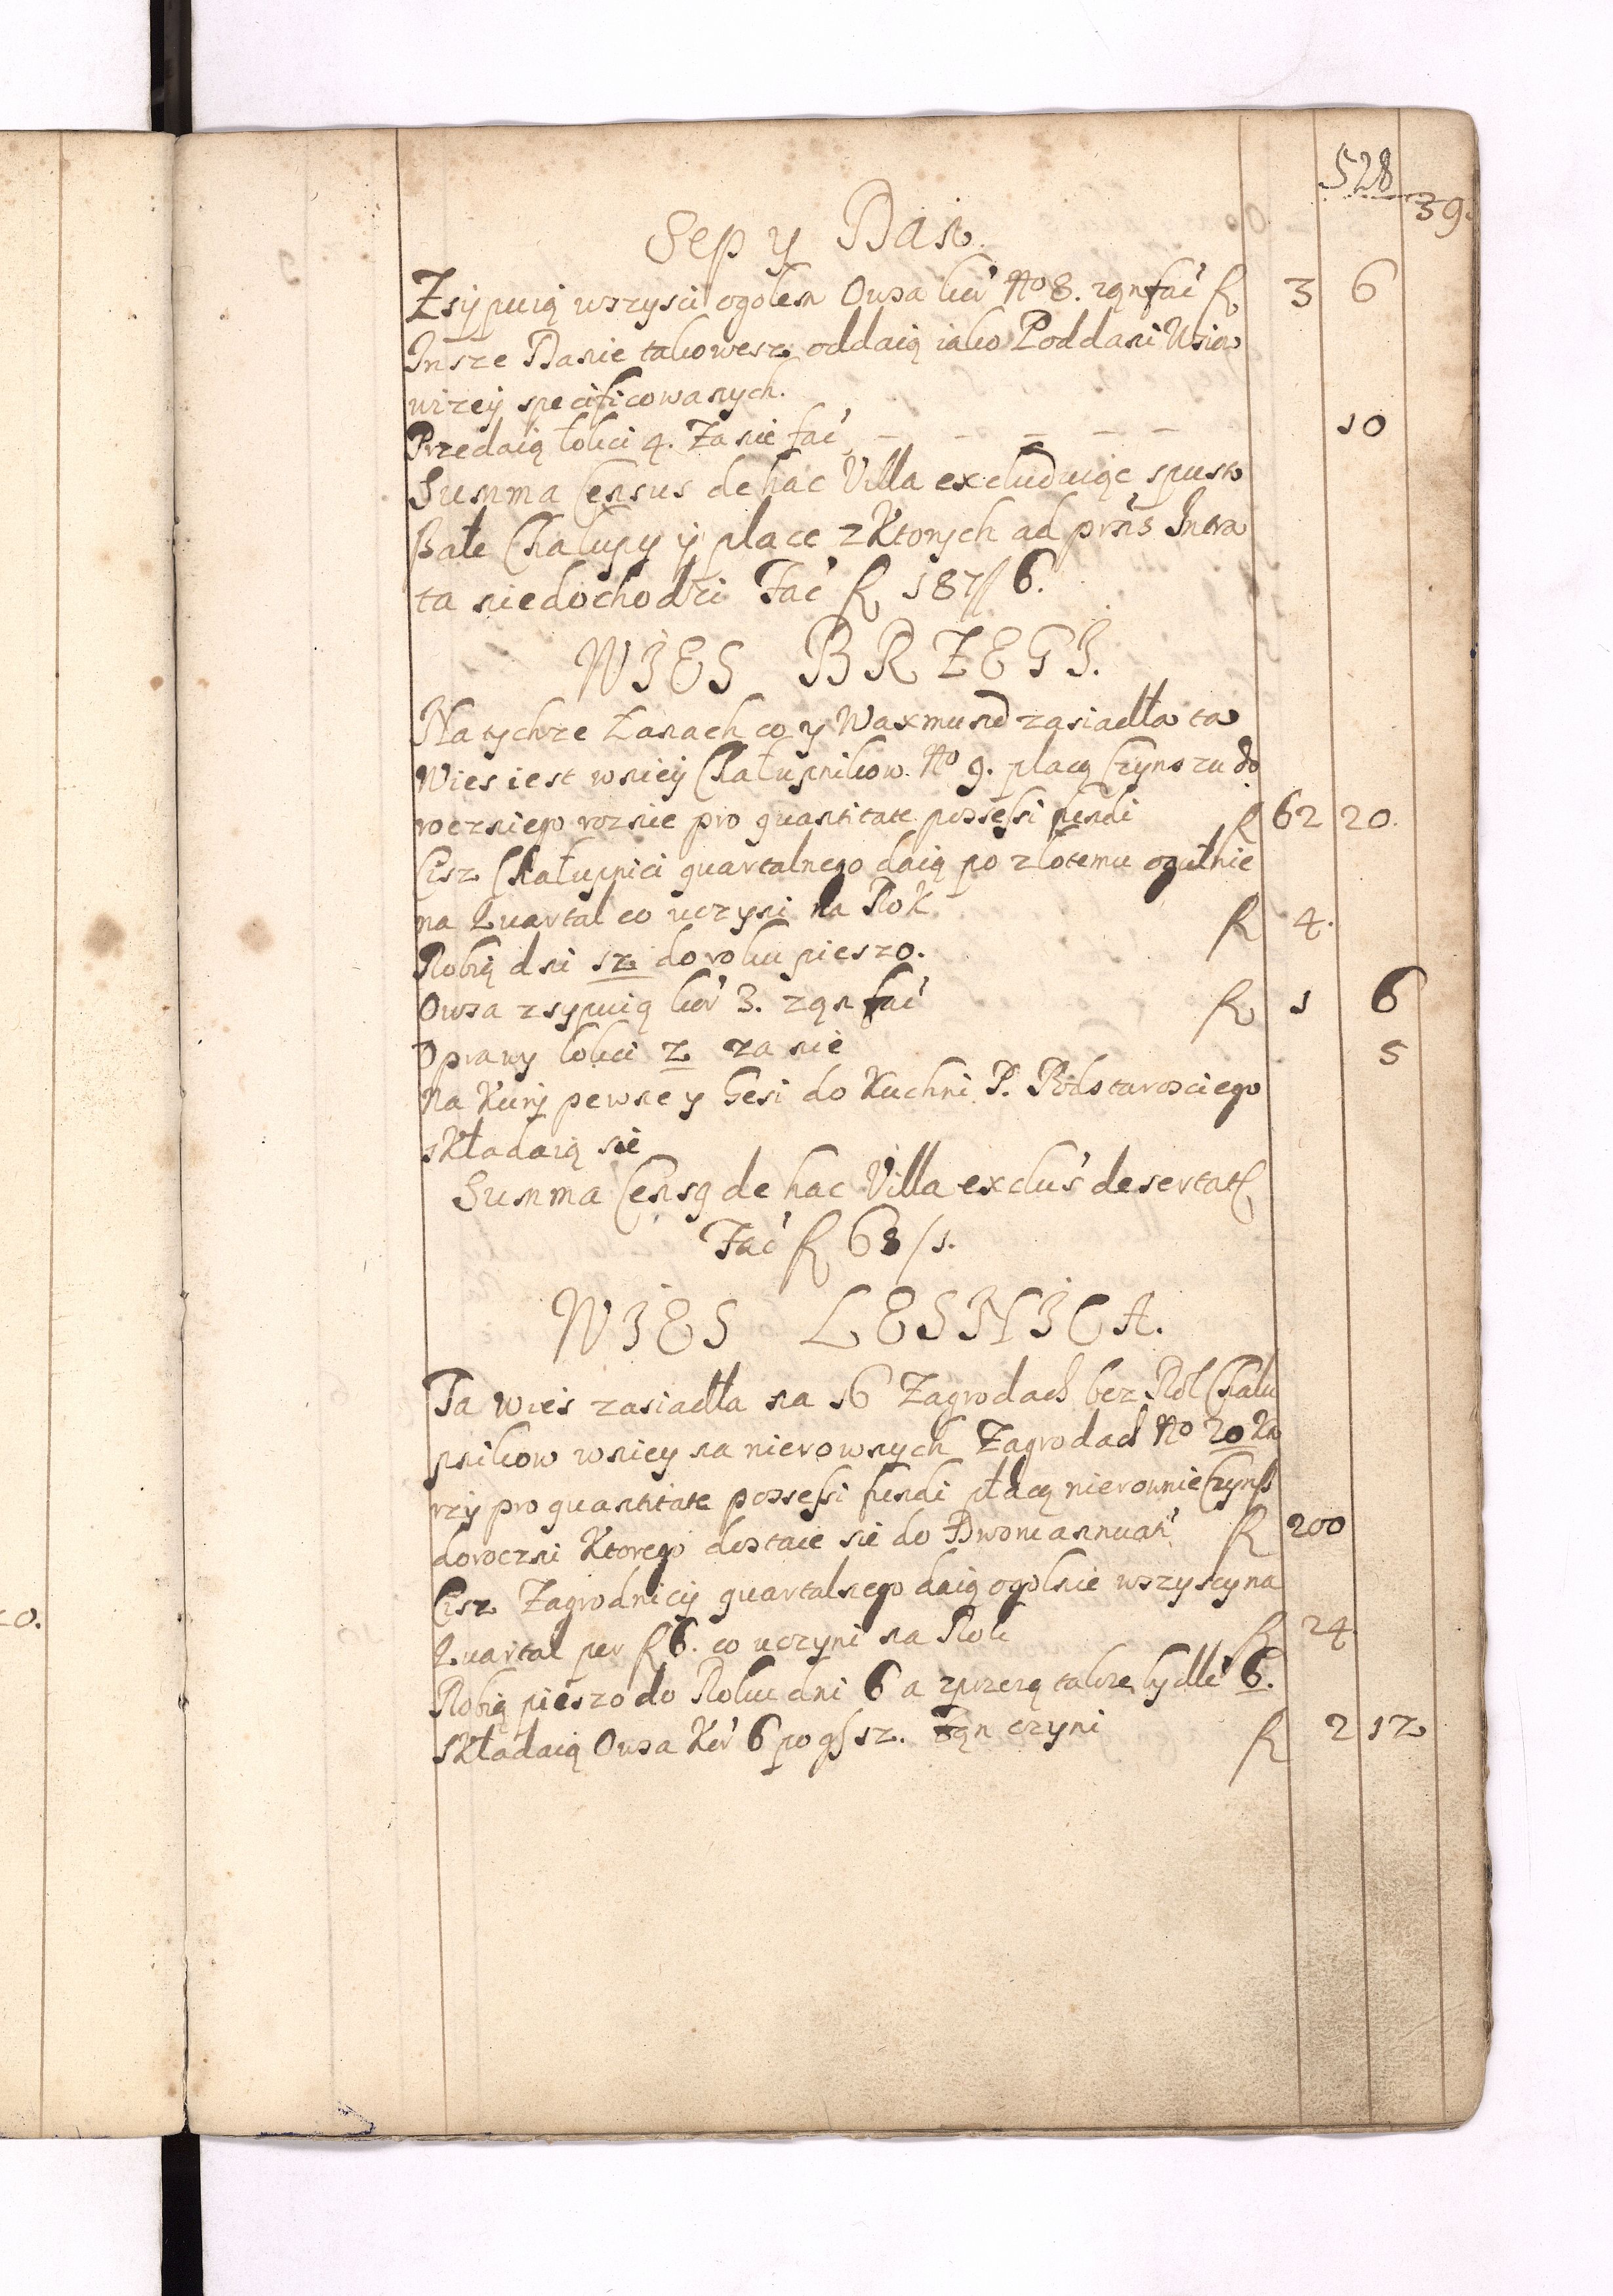 528
39.
Sep y Dań.
Zsypuią wszysci ogolem Owsa kor No 8. zqn fać f 3 6
Insze Danie takowesz oddaią iako Poddani Wsiow
wizey specificowanych.
Przedaią łokci 4. Za nie fać — — — — — 10
Summa Census de hac Villa excluduiąc spusto
szałe Chałupy y place z Ktorych ad prńs Intra
ta niedochodzi Fać f 187// 6.
WIES BRZEGI.
Na tychze Łanach co y Waxmund zasiadła ta
Wies iest w niey Chałupnikow No 9. płacą Czynszu do
roczniego roznie pro quantitate possessi fundi f 62 20.
Cisz Chałupnici quartalnego daią po złotemu ogulnie
na Quartal co uczyni na Rok f 4.
Robią dni 12 do roku pieszo.
Owsa zsypuią kor 3. zqn fać f 1 6
Oprawy łokci 2 za nie 5
Na Kury pewne y Gesi do Kuchni P. Podstarosciego
składaią sie
Summa Censq de hac Villa exclus desertat
Fać f 68 /1.
WIES LESNICA.
Ta Wies zasiadła na 16 Zagrodach bez Rol Chału
pnikow w niey na nierownych Zagrodach No 20 Kto
rzy pro quantitate possessi fundi płacą nierownie Czynsz
doroczni Ktorego dostaie sie do Dworu annuat f 200
Cisz Zagrodnicy quartalnego daią ogolnie wszyscy na
Quartal per f 6. co uczyni na Rok f 24
Robią pieszo do Roku dni 6 a zprzezą takze bydli 6.
Składaią Owsa Kor 6 po gs 12. zqn czyni f 2 12